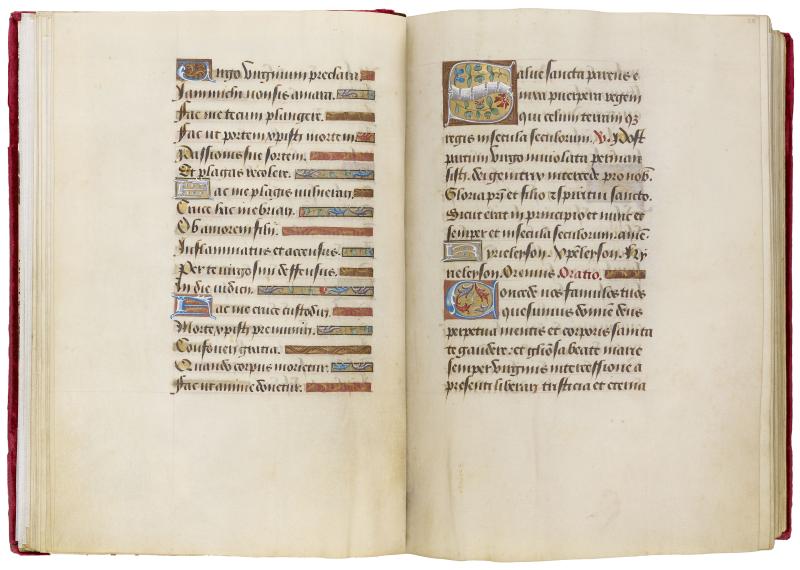 Virgo virginum preclara.
Iam michi non sis amara.
Fac me tecum plangere.
Fac ut portem xpisti mortem.
Passionis sue sortem.
Et plagas recolere.
Fac me plagis vulnerari.
Cruce hac inebriari.
Ob amorem filii.
Inflammatus et accensus.
Per te virgo sim deffensus.
In die iudicii.
Fac me cruce custodiri.
Morte xpisti premuniri.
Confoveri gratia.
Quando corpus morietur.
Fac ut anime donetur.
Salve sancta parens e
nixa puerpera regem
qui celum terram qz
regis in secula seculorum. V. Post
partum virgo inviolata perman
sisti. dei genitrix intercede pro nob̄.
Gloria pr̄i et filio et spiritui sancto.
Sicut erat in principio et nunc et
semper et in secula seculorum. amē.
Kyrieleyson. Xp̄eleyson. Ky
rieleyson. Oremus Oratio.
Concede nos famulos tuos
quesumus domine deus
perpetua mentis et corporis sanita
te gaudere: et gliosa beate marie
semper virginis intercessione a
presenti liberari tristicia et eterna